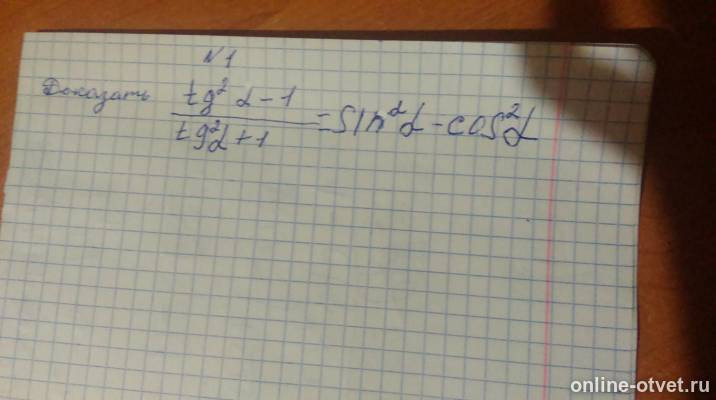 N1
Доказать tg² α - 1 / tg²α + 1 = sin²α - cos²α
online-otvet.ru